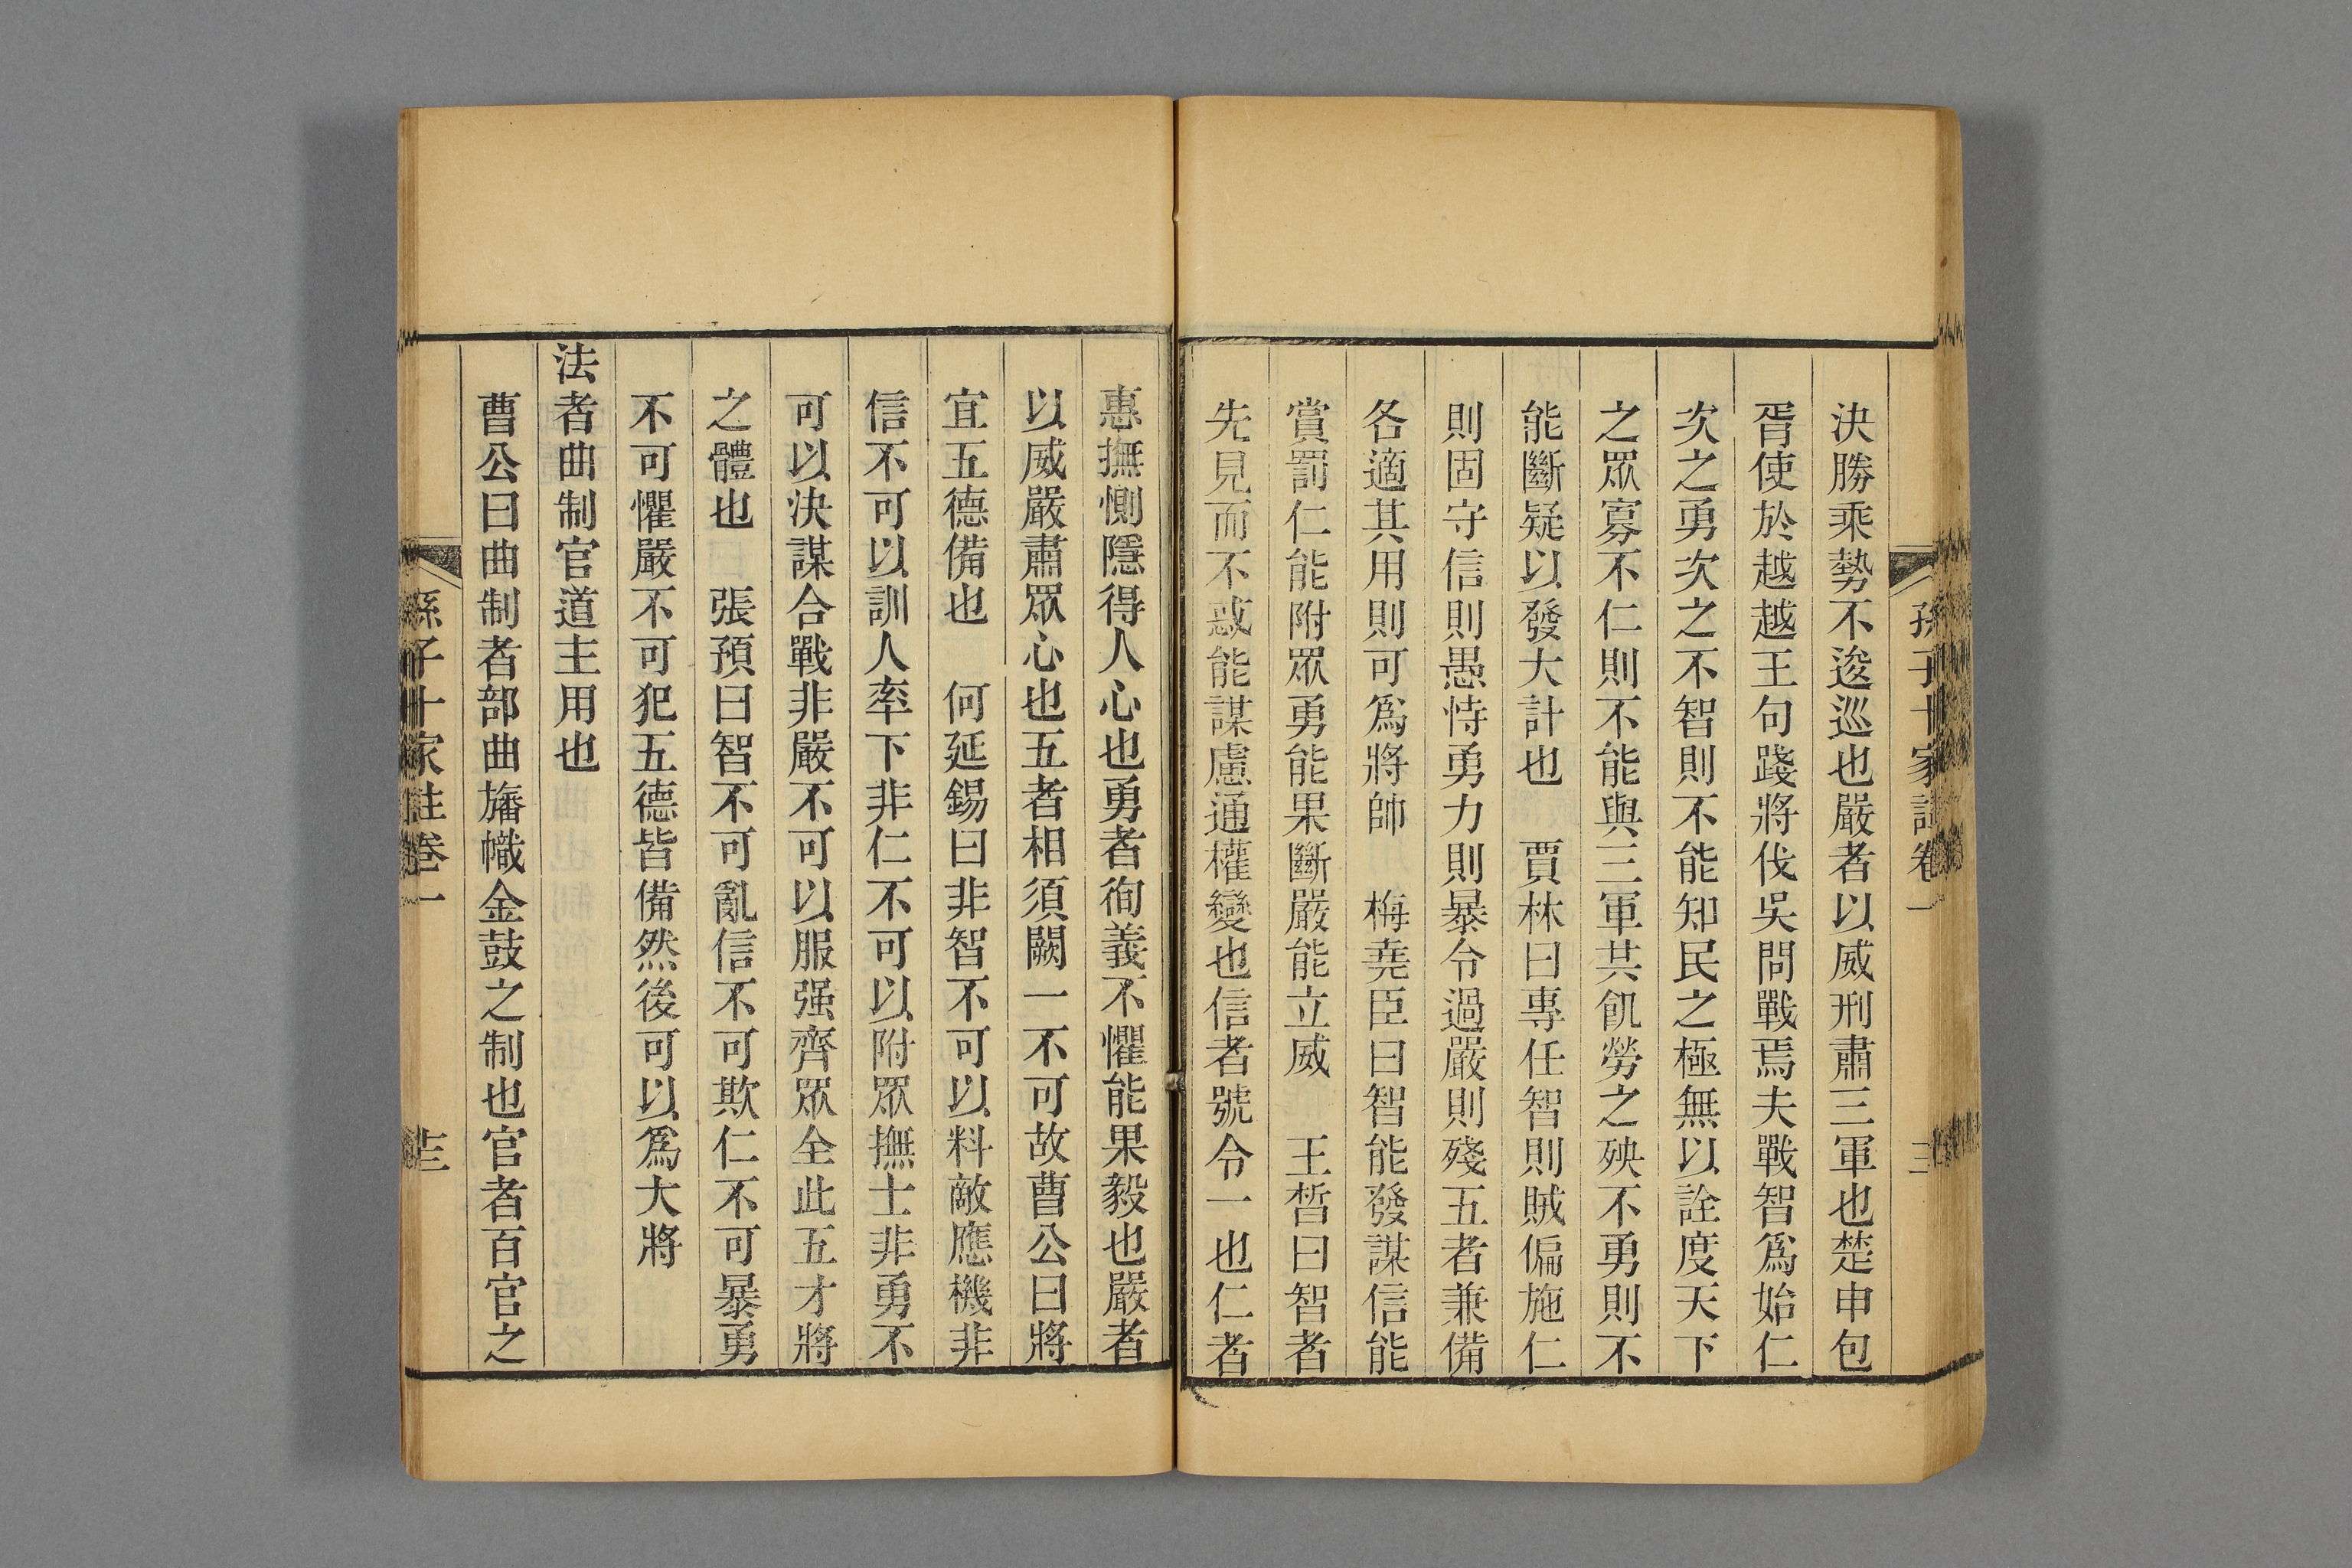 孫子十家註卷一
三
決勝乘勢不逡巡也嚴者以威刑肅三軍也楚申包
胥使於越越王句踐將伐吳問戰焉夫戰智爲始仁
次之勇次之不智則不能知民之極無以詮度天下
之眾寡不仁則不能與三軍共飢勞之殃不勇則不
能斷疑以發大計也　賈林曰專任智則賊偏施仁
則固守信則愚恃勇力則暴令過嚴則殘五者兼備
各適其用則可爲將帥　梅堯臣曰智能發謀信能
賞罰仁能附眾勇能果斷嚴能立威　王皙曰智者
先見而不惑能謀慮通權變也信者號令一也仁者
惠撫惻隱得人心也勇者徇義不懼能果毅也嚴者
以威嚴肅眾心也五者相須闕一不可故曹公曰將
宜五德備也　何延錫曰非智不可以料敵應機非
信不可以訓人率下非仁不可以附眾撫士非勇不
可以決謀合戰非嚴不可以服强齊眾全此五才將
之體也　張預曰智不可亂信不可欺仁不可暴勇
不可懼嚴不可犯五德皆備然後可以爲大將
法者曲制官道主用也
曹公曰曲制者部曲旛幟金鼓之制也官者百官之
孫子十家註卷一